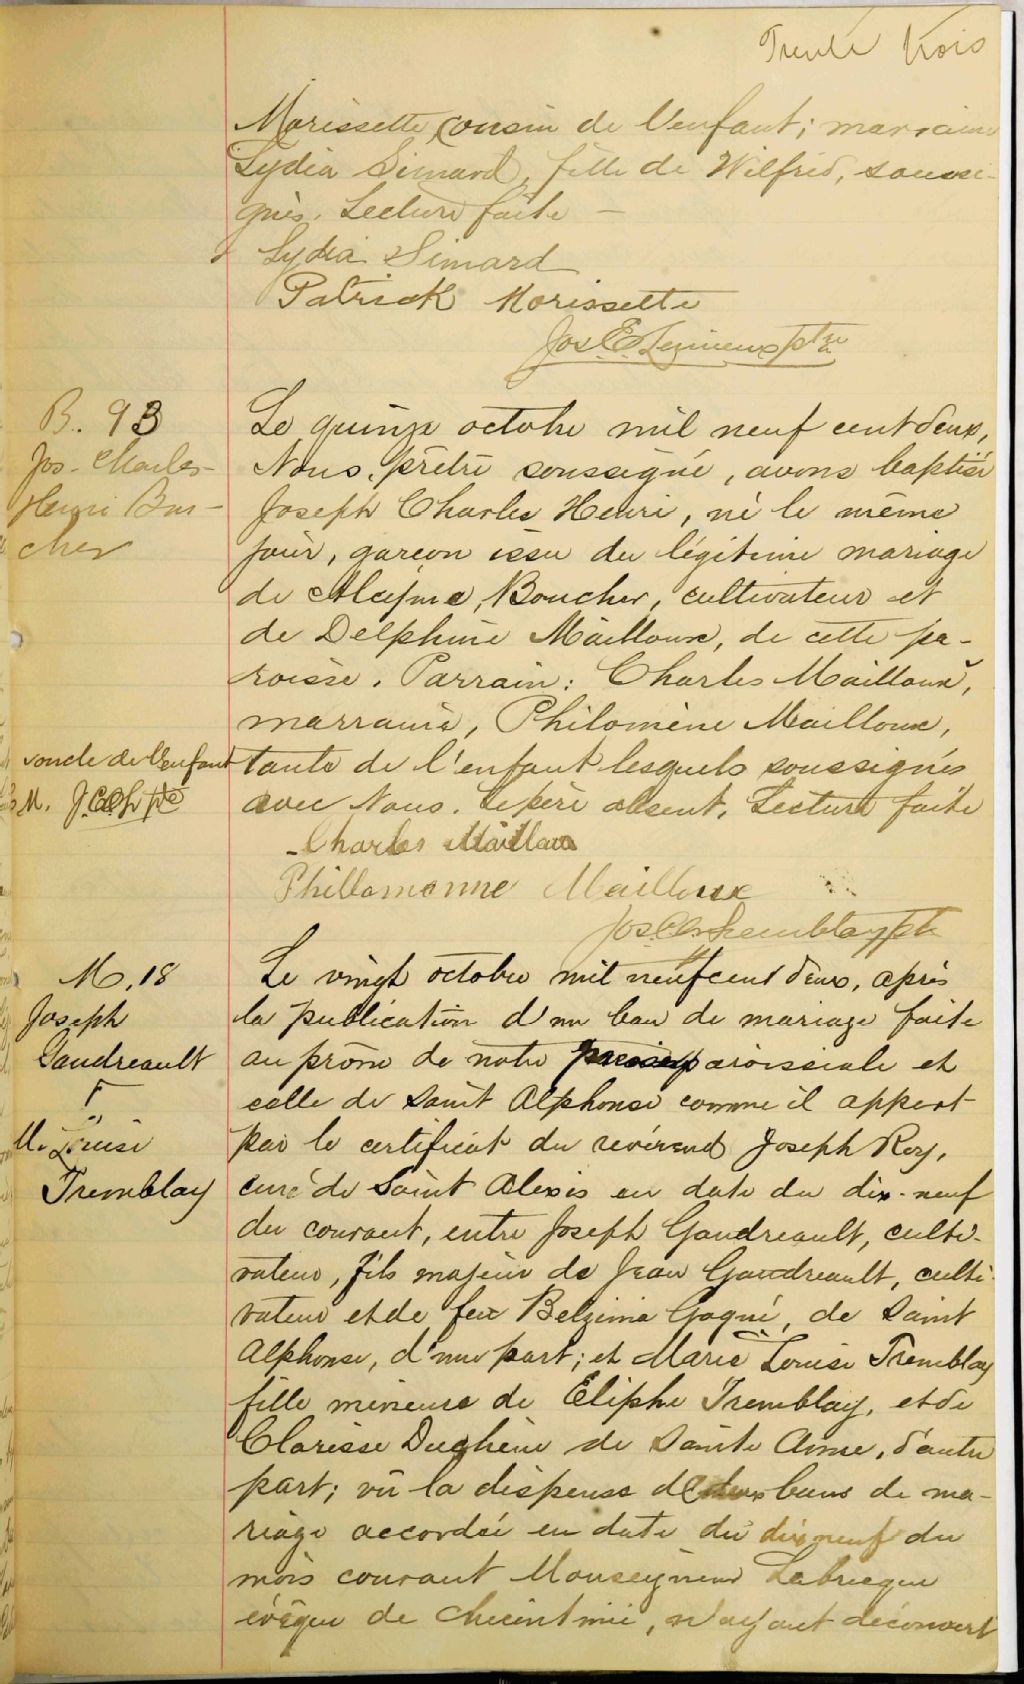 Trente trois
Morissette cousin de l'enfant; marraine
Lydia Simard, fille de Wilfrid, soussi-
gnés. Lecture faite —
Lydia Simard
Patrick Morissette
Jos E Lemieux ptre
B. 93
Jos. Charles-
Henri Bou-
cher
Le quinze octobre mil neuf cent deux,
Nous, prêtre soussigné, avons baptisé
Joseph Charles Henri, né le même
jour, garçon issu du légitime mariage
de Boucher, cultivateur et
de Delphine Mailloux, de cette pa-
roisse. Parrain: Charles Mailloux,
marraine, Philomène Mailloux,
oncle de l'enfant
M.
tante de l'enfant lesquels soussignés
avec Nous. Le père absent. Lecture faite
Charles Mailloux
Phillomenne Mailloux
Tremblay ptre
M. 18
Joseph
Gaudreault
&
M. Louise
Tremblay
Le vingt octobre mil neuf cent deux, après
la publication d'un ban de mariage faite
au prône de notre paroissiale et
celle de Saint Alphonse comme il appert
par le certificat du revérend Joseph Roy,
curé de Saint Alexis en date du dix-neuf
du courant, entre Joseph Gaudreault, culti-
vateur, fils majeur de Jean Gaudreault, culti-
vateur et de feu Belzimie Gagné, de Saint
Alphonse, d'une part; et Marie Louise Tremblay
fille mineure de Eliphe Tremblay, et de
Clarisse Duchène de Sainte Anne, d'autre
part; vû la dispense de deux bans de ma-
riage accordée en date du dix neuf du
mois courant Monseigneur Labrecque
évêque de Chicoutimi, n'ayant découvert